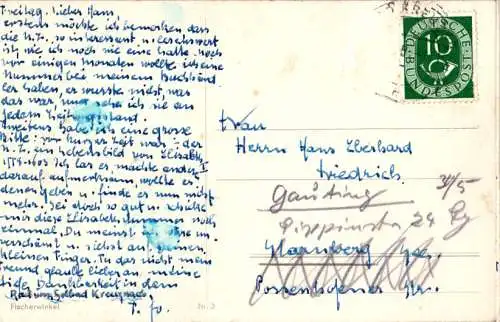 Freitag. Lieber Hans
erstens möchte ich bemerken dass
die N.Z. so interessant u. lesenswert
ist wie ich noch nie eine hatte. Noch
vor einigen Monaten wollte ich eine
Nummer bei meinem Buchhänd
ler haben, er wusste nicht, was
das war, nun sehe ich sie an
jedem Zeitungsstand.
Zweitens habe ich eine grosse
Bitte: vor kurzer Zeit war in der
N.Z. ein Lebensbild von Elisabeth
ich las er machte andere
darauf aufmerksam, wollte es
denen geben u. finde es nun nicht
mehr. Sei doch so gut u. schicke
mir diese Elisabeth Nummer noch
einmal. Du meinst ich wäre un
verschämt u. siehst auf Deinen
kleinen Finger. Tu das nicht mein
Freund glaube lieber an meine
Dankbarkeit in dem
Solbad Kreuznach
Fischerwinkel
Nr. 3
DEUTSCHE
BUNDESPOST
10
Frau
Herrn Hans Eberhard
Friedrich
Gauting 31/5
Pippinstr 24
Starnberg
Possenhofener Str.